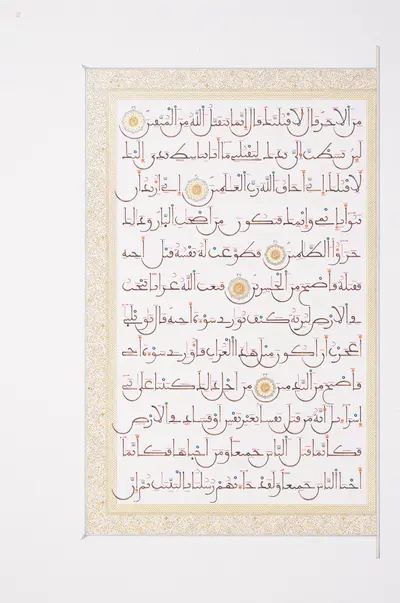 من الاخر قال لاقتلنك قال انما يتقبل الله من المتقين
لئن بسطت الي يدك لتقتلني ما انا بباسط يدي اليك
لاقتلك اني اخاف الله رب العلمين اني اريد ان
تبوا باثمي واثمك فتكون من اصحب النار وذلك
جزؤا الظلمين فطوعت له نفسه قتل اخيه
فقتله فاصبح من الخسرين فبعث الله غرابا يبحث
في الارض ليريه كيف يوري سوءة اخيه قال يويلتى
اعجزت ان اكون مثل هذا الغراب فاوري سوءة اخي
فاصبح من الندمين من اجل ذلك كتبنا على بني
اسرءيل انه من قتل نفسا بغير نفس او فساد في الارض
فكانما قتل الناس جميعا ومن احياها فكانما
احيا الناس جميعا ولقد جاءتهم رسلنا بالبينت ثم ان